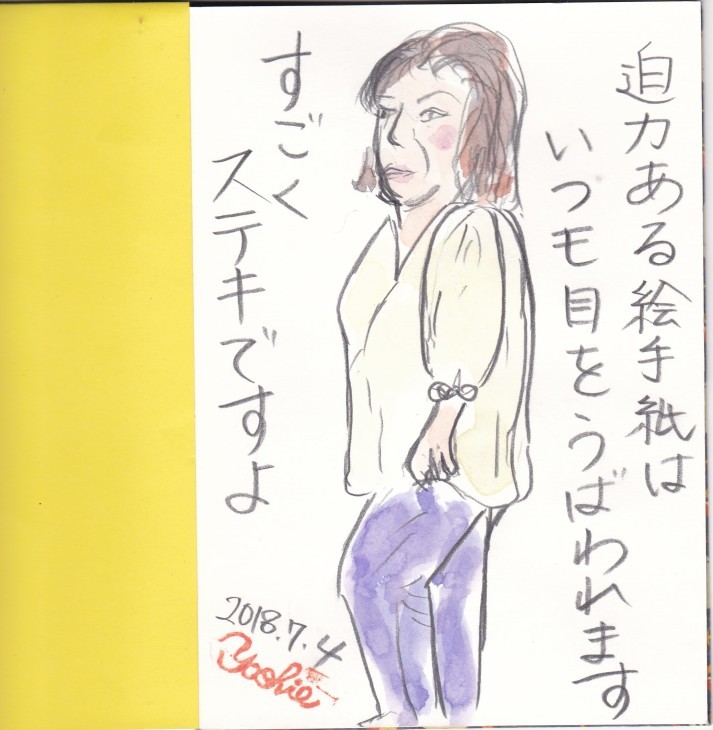 迫力ある絵手紙は
いつモ目をうばわれます
すごく
ステキですよ
2018.7.4
Yoshie